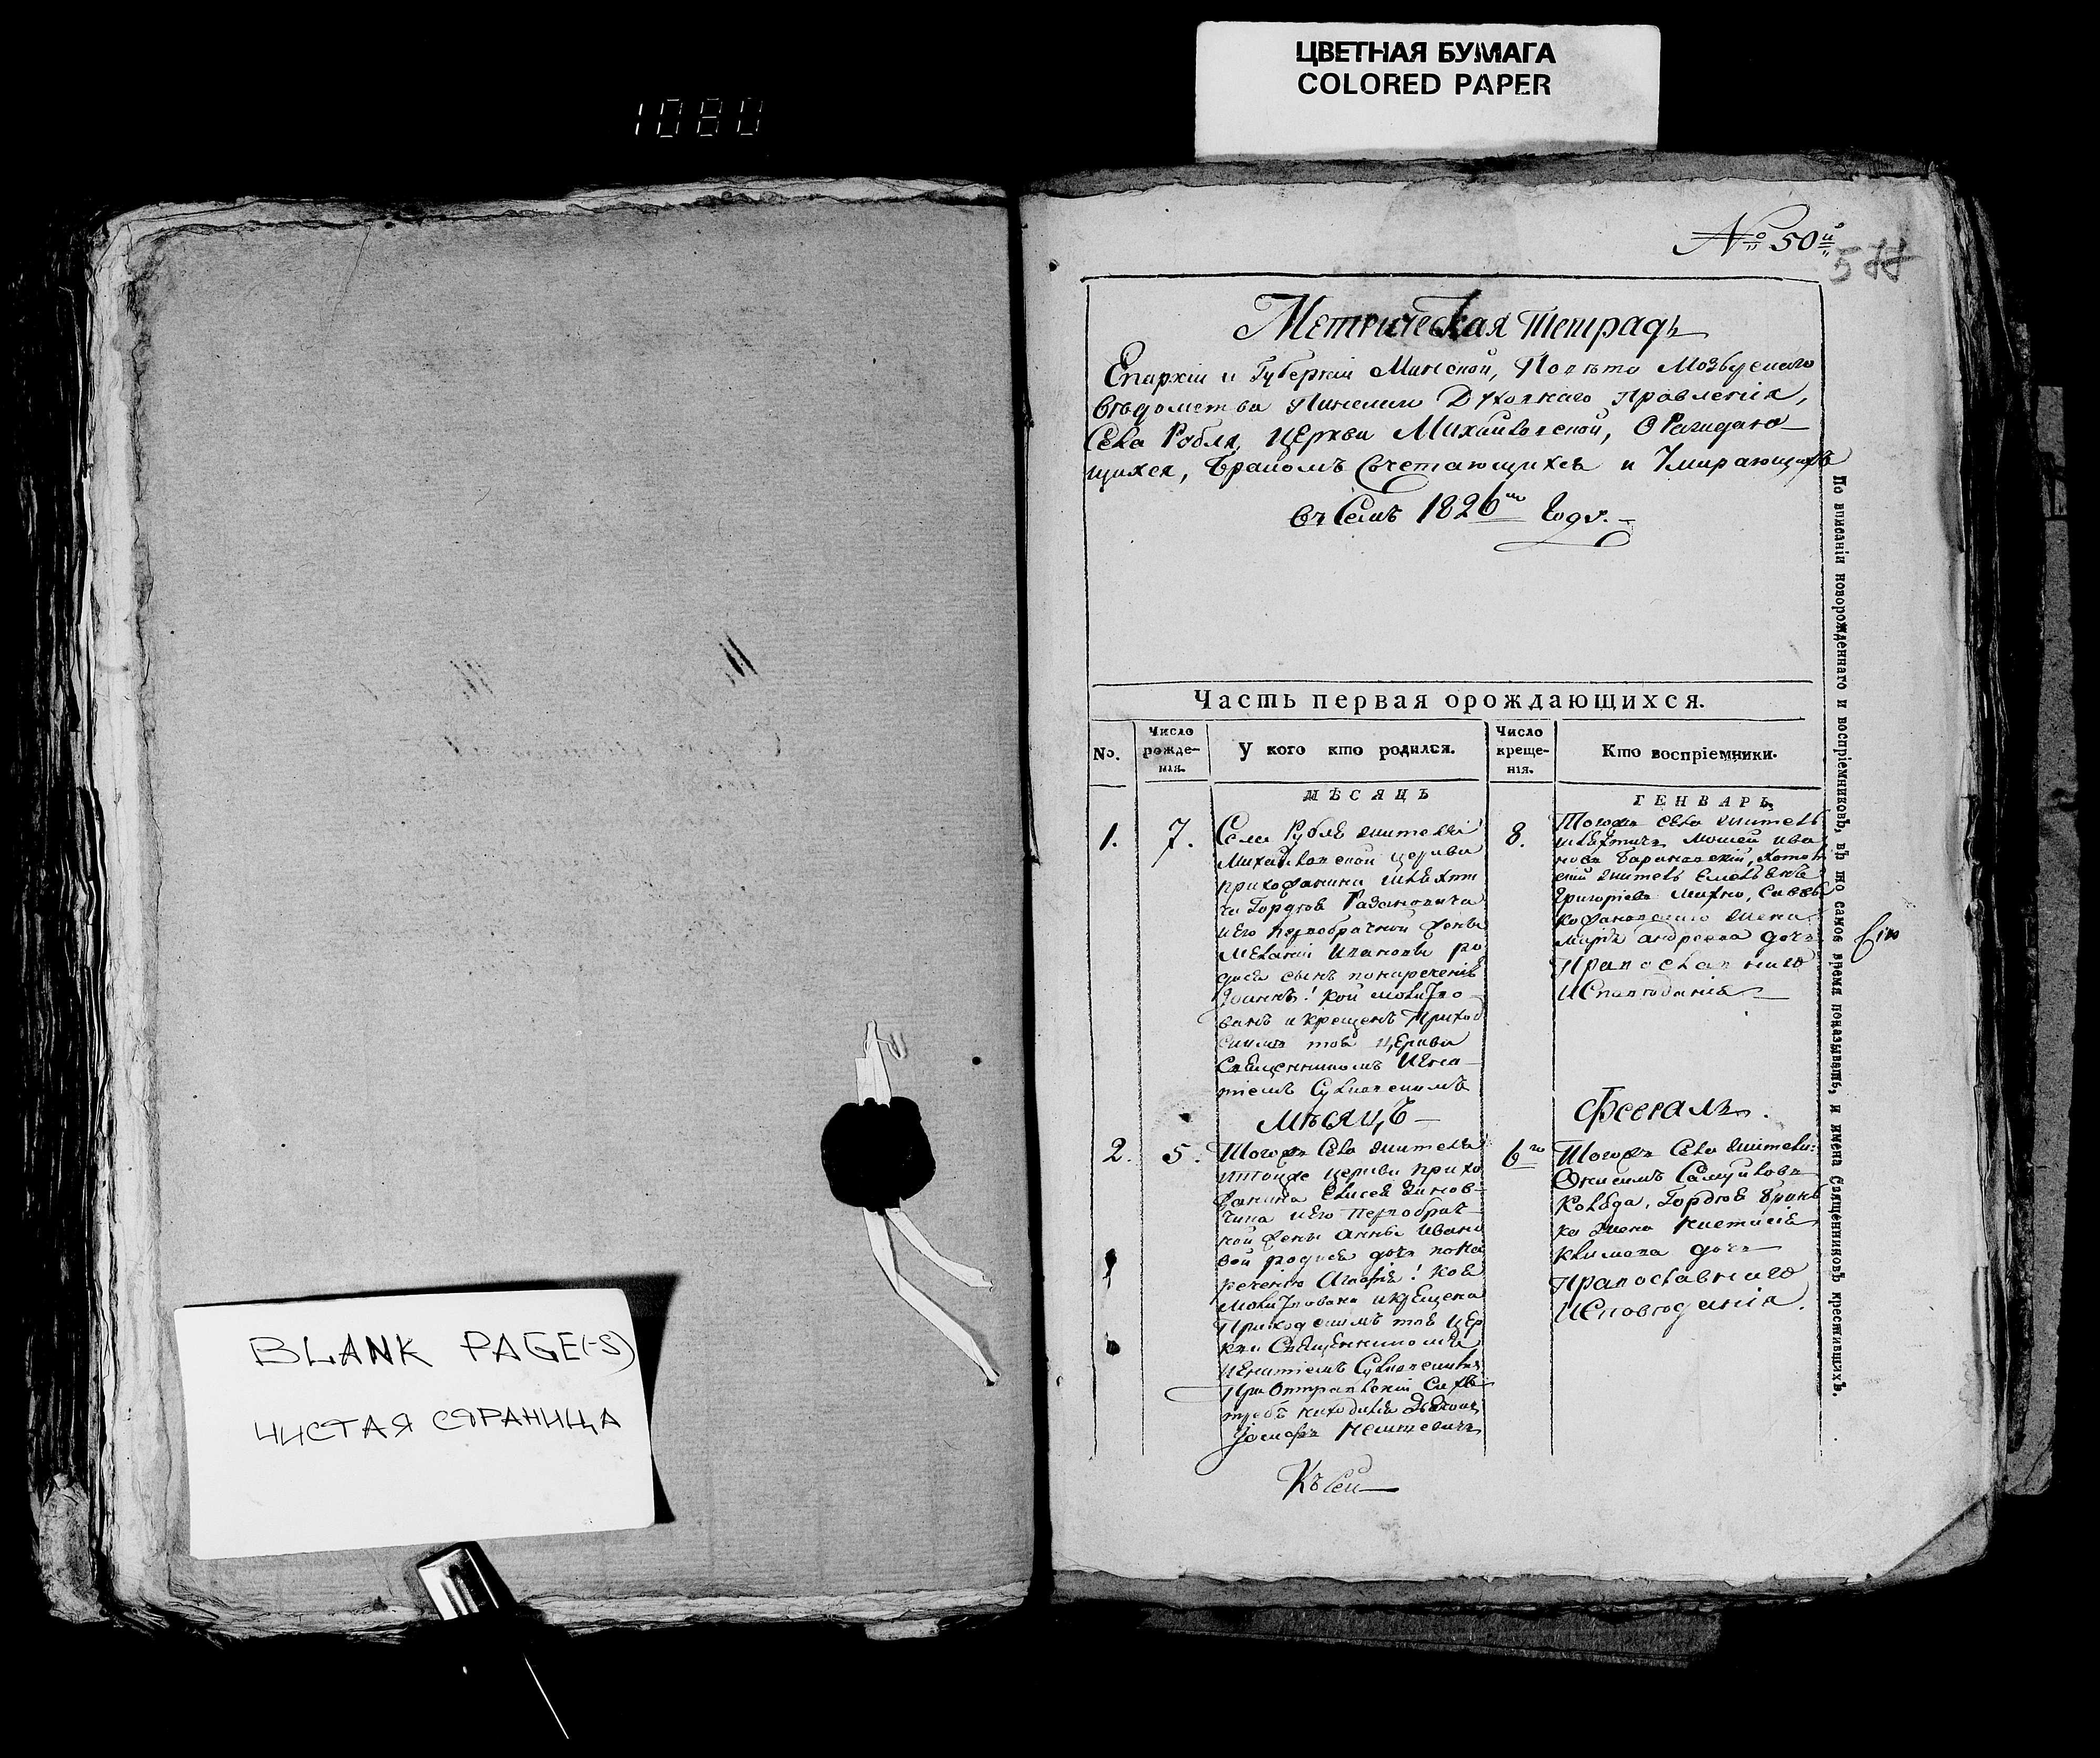 ЦВЕТНАЯ БУМАГА
COLORED PAPER
1080
№ 50й
577
Метрическая Тетрадь
Епархіи и Губерніи Минской, Повѣта Мозырскаго
вѣдомства Пинскаго Духовнаго Правленія,
Села Рубля, Церкви Михайловской, О Рагидаю-
щихся, Бракомъ Сочетающихся и Умирающихъ
въ Семъ 1826мъ Году.
Часть первая орождающихся.
No.
Число рожде- нія.
У кого кто родился.
Число креще- нія.
Кто воспріемники.
МѢСЯЦЪ
ГЕНВАРЬ
1.
7.
Села Рубля жителя
Михайловской церкви
прихожанина шляхти
ча Гордѣя
и его первобрачной жены
Меланіи Ивановы ро
дися сынъ понареченіе
Іоаннъ! кой молитво
ванъ и крещенъ Приход
скимъ тоя церкви
Священникомъ Игна
тіемъ
8.
Тогожъ села житель
шляхтичъ Моисей Ива
новъ Барановскій,
житель Емельянъ
Григоріевъ Михно, Саввы
жена
Марія Андреева дочь
Православнаго
Исповѣданія
МѢСЯЦЪ
Февраль.
2.
5.
Тогожъ Села жителя
итоиже церкви прихо
жанина Елисея Зинов-
чика иего Первобрач-
ной жены Анны Ивано
вой родися дочь пона
реченію Агафія! коя
молитвована икрещена
Приходскимъ тоя Цер
кви Священникомъ
Игнатіемъ
При Отправленіи Сихъ
требъ находился Дьячокъ
Іосифъ
6го
Тогожъ Села жители:
Онисимъ Самуиловъ
Коляда, Гордѣя
ка жена
Климова дочь
Православнаго
Исповѣданія.
Къ сей
По вписаніи новорожденнаго и воспріемниковъ, въ то самое время показывать, и имена Священниковъ крестившихъ.
Сію
BLANK PAGE(-S)
ЧИСТАЯ СТРАНИЦА